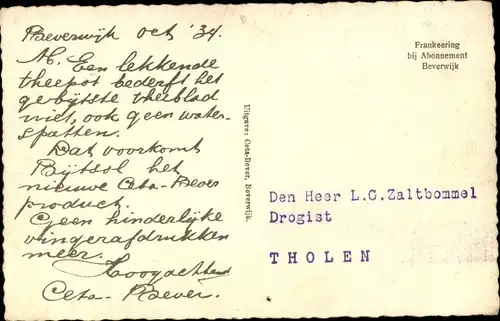 Beverwijk Oct '34.
M. Een lekkende
theepot bederft het
gebijtste theeblad
niet, ook geen water-
spatten.
Dat voorkomt
Bijtsol het
nieuwe Ceta-Bever
product.
Geen hinderlijke
vingerafdrukken
meer.
Hoogachtend
Ceta-Bever.
Uitgave: Ceta-Bever, Beverwijk.
Frankeering
bij Abonnement
Beverwijk
Den Heer L.C.Zaltbommel
Drogist
THOLEN